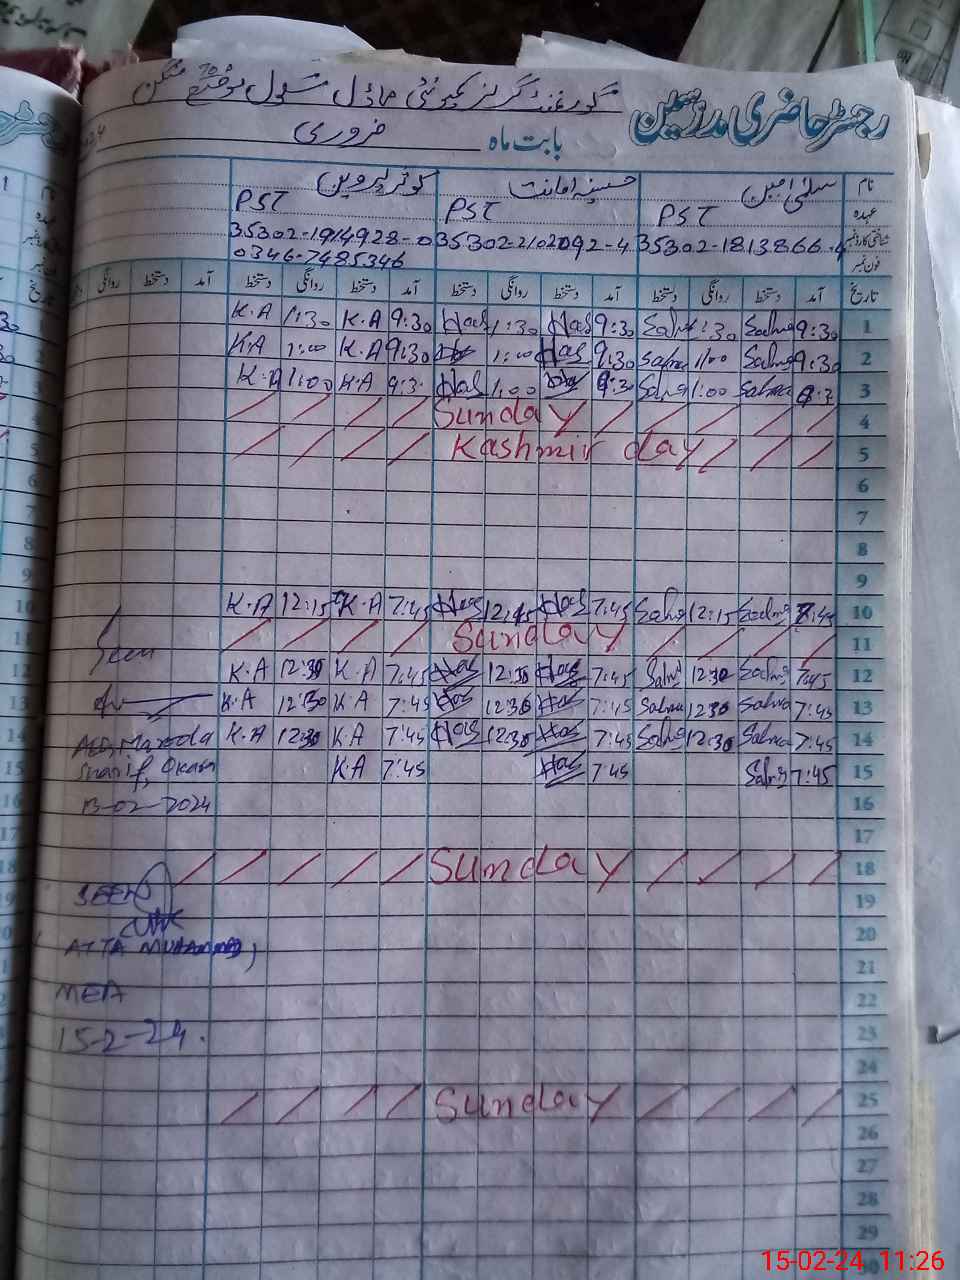 رجسٹر حاضری مدرسین
گورنمنٹ گرلز کمیونٹی ماڈل سکول
بابت ماہ فروری
نام سلمیٰ امین حسینہ امانت کوثر پروین
عہدہ PST PST PST
شناختی کارڈ نمبر 35302-1813866-4 35302-2102092-4 35302-1914928-0
فون نمبر 0346-7485346
تاریخ آمد دستخط روانگی دستخط آمد دستخط روانگی دستخط آمد دستخط روانگی دستخط آمد دستخط روانگی
1 9:30 Salma 1:30 Salma 9:30 Has 1:30 Has 9:30 K.A 1:30 K.A
2 9:30 Salma 1:00 Salma 9:30 Has 1:00 Has 9:30 K.A 1:00 K.A
3 9:3 Salma 1:00 Salma 9:3 Has 1:00 Has 9:3 K.A 1:00 K.A
4 Sunday
5 Kashmir day
6
7
8
9
10 7:45 Salma 12:15 Salma 7:45 Has 12:15 Has 7:45 K.A 12:15 K.A
11 Sunday
12 7:45 Salma 12:30 Salma 7:45 Has 12:30 Has 7:45 K.A 12:30 K.A
13 7:45 Salma 12:30 Salma 7:45 Has 12:30 Has 7:45 K.A 12:30 K.A
14 7:45 Salma 12:30 Salma 7:45 Has 12:30 Has 7:45 K.A 12:30 K.A
15 7:45 Salma 7:45 Has 7:45 K.A
16
17
18 Sunday
19
20
21
22
23
24
25 Sunday
26
27
28
29
30
Seen
AEO, Markaz
Sharif, Okara
13-02-2024
SEEN
ATTA MUHAMMAD,
MEA
15-2-24.
15-02-24 11:26